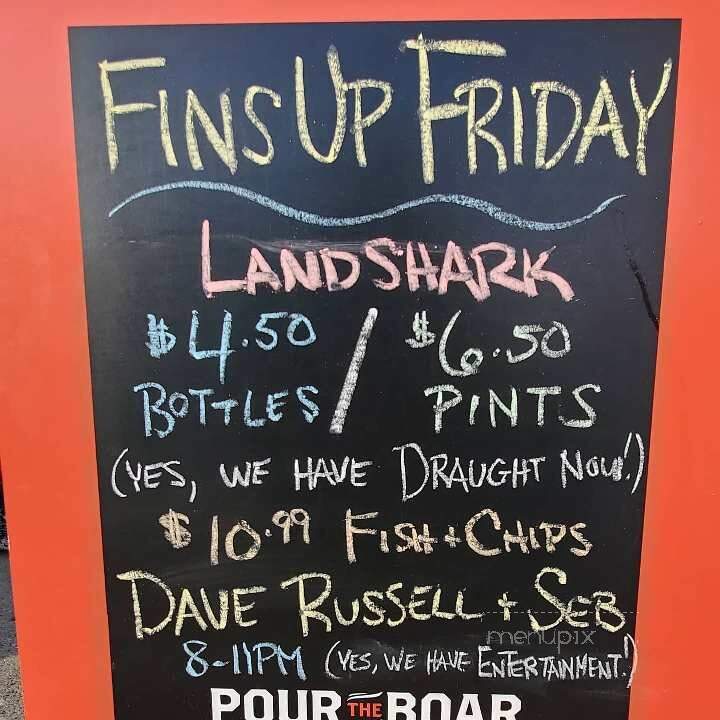 FINS UP FRIDAY
LANDSHARK
$4.50 / $6.50
BOTTLES PINTS
(YES, WE HAVE DRAUGHT NOW!)
$10.99 FISH + CHIPS
DAVE RUSSELL + SEB
menupix
8-11PM (YES, WE HAVE ENTERTAINMENT!)
POUR THE BOAR